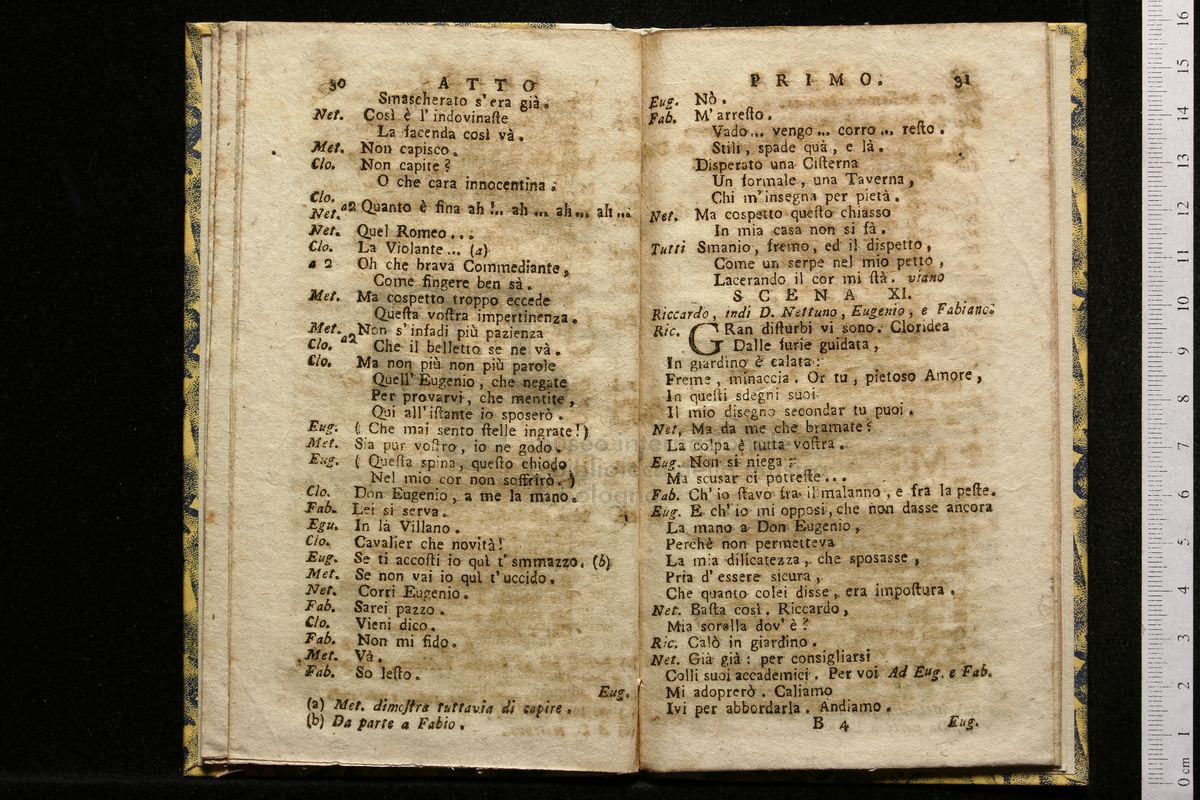 30 ATTO
Smascherato s'era già.
Net. Così è l'indovinaste
La facenda così và.
Met. Non capisco.
Clo. Non capite?
O che cara innocentina.
Clo.
Net. a2 Quanto è fina ah!... ah ... ah... ah...
Net. Quel Romeo...
Clo. La Violante... (a)
a 2 Oh che brava Commediante,
Come fingere ben sà.
Met. Ma cospetto troppo eccede
Questa vostra impertinenza.
Met. Non s'infadi più pazienza
Clo. a2 Che il belletto se ne và.
Clo. Ma non più non più parole
Quell' Eugenio, che negate
Per provarvi, che mentite,
Qui all'istante io sposerò.
Eug. ( Che mai sento stelle ingrate!)
Met. Sia pur vostro, io ne godo.
Eug. ( Questa spina, questo chiodo
Nel mio cor non soffrirò.)
Clo. Don Eugenio, a me la mano.
Fab. Lei si serva.
Egu. In là Villano.
Clo. Cavalier che novità!
Eug. Se ti accosti io quì t'smmazzo. (b)
Met. Se non vai io quì t'uccido.
Net. Corri Eugenio.
Fab. Sarei pazzo.
Clo. Vieni dico.
Fab. Non mi fido.
Met. Và.
Fab. So lesto.
Eug.
(a) Met. dimostra tuttavia di capire.
(b) Da parte a Fabio.
PRIMO. 31
Eug. Nò.
Fab. M'arresto.
Vado... vengo... corro... resto.
Stili, spade quà, e là.
Disperato una Cisterna
Un formale, una Taverna,
Chi m'insegna per pietà.
Net. Ma cospetto questo chiasso
In mia casa non si fà.
Tutti Smanio, fremo, ed il dispetto,
Come un serpe nel mio petto,
Lacerando il cor mi stà. viano
SCENA XI.
Riccardo, indi D. Nettuno, Eugenio, e Fabiano.
Ric. GRan disturbi vi sono. Cloridea
Dalle furie guidata,
In giardino è calata:
Freme, minaccia. Or tu, pietoso Amore,
In questi sdegni suoi
Il mio disegno secondar tu puoi.
Net. Ma da me che bramate?
La colpa è tutta vostra.
Eug. Non si niega:
Ma scusar ci potreste...
Fab. Ch'io stavo fra il malanno, e fra la peste.
Eug. E ch'io mi opposi, che non dasse ancora
La mano a Don Eugenio,
Perchè non permetteva
La mia dilicatezza, che sposasse,
Pria d'essere sicura,
Che quanto colei disse, era impostura.
Net. Basta così. Riccardo,
Mia sorella dov'è?
Ric. Calò in giardino.
Net. Già già: per consigliarsi
Colli suoi accademici. Per voi Ad Eug. e Fab.
Mi adoprerò. Caliamo
Ivi per abbordarla. Andiamo.
B 4 Eug.